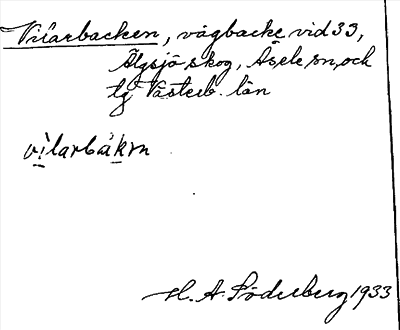 Vilarbacken, vägbacke vid 33,
Älgsjö skog, Åsele sn, och
lg Västerb. län
vìlarbákm
H. A. Söderberg 1933